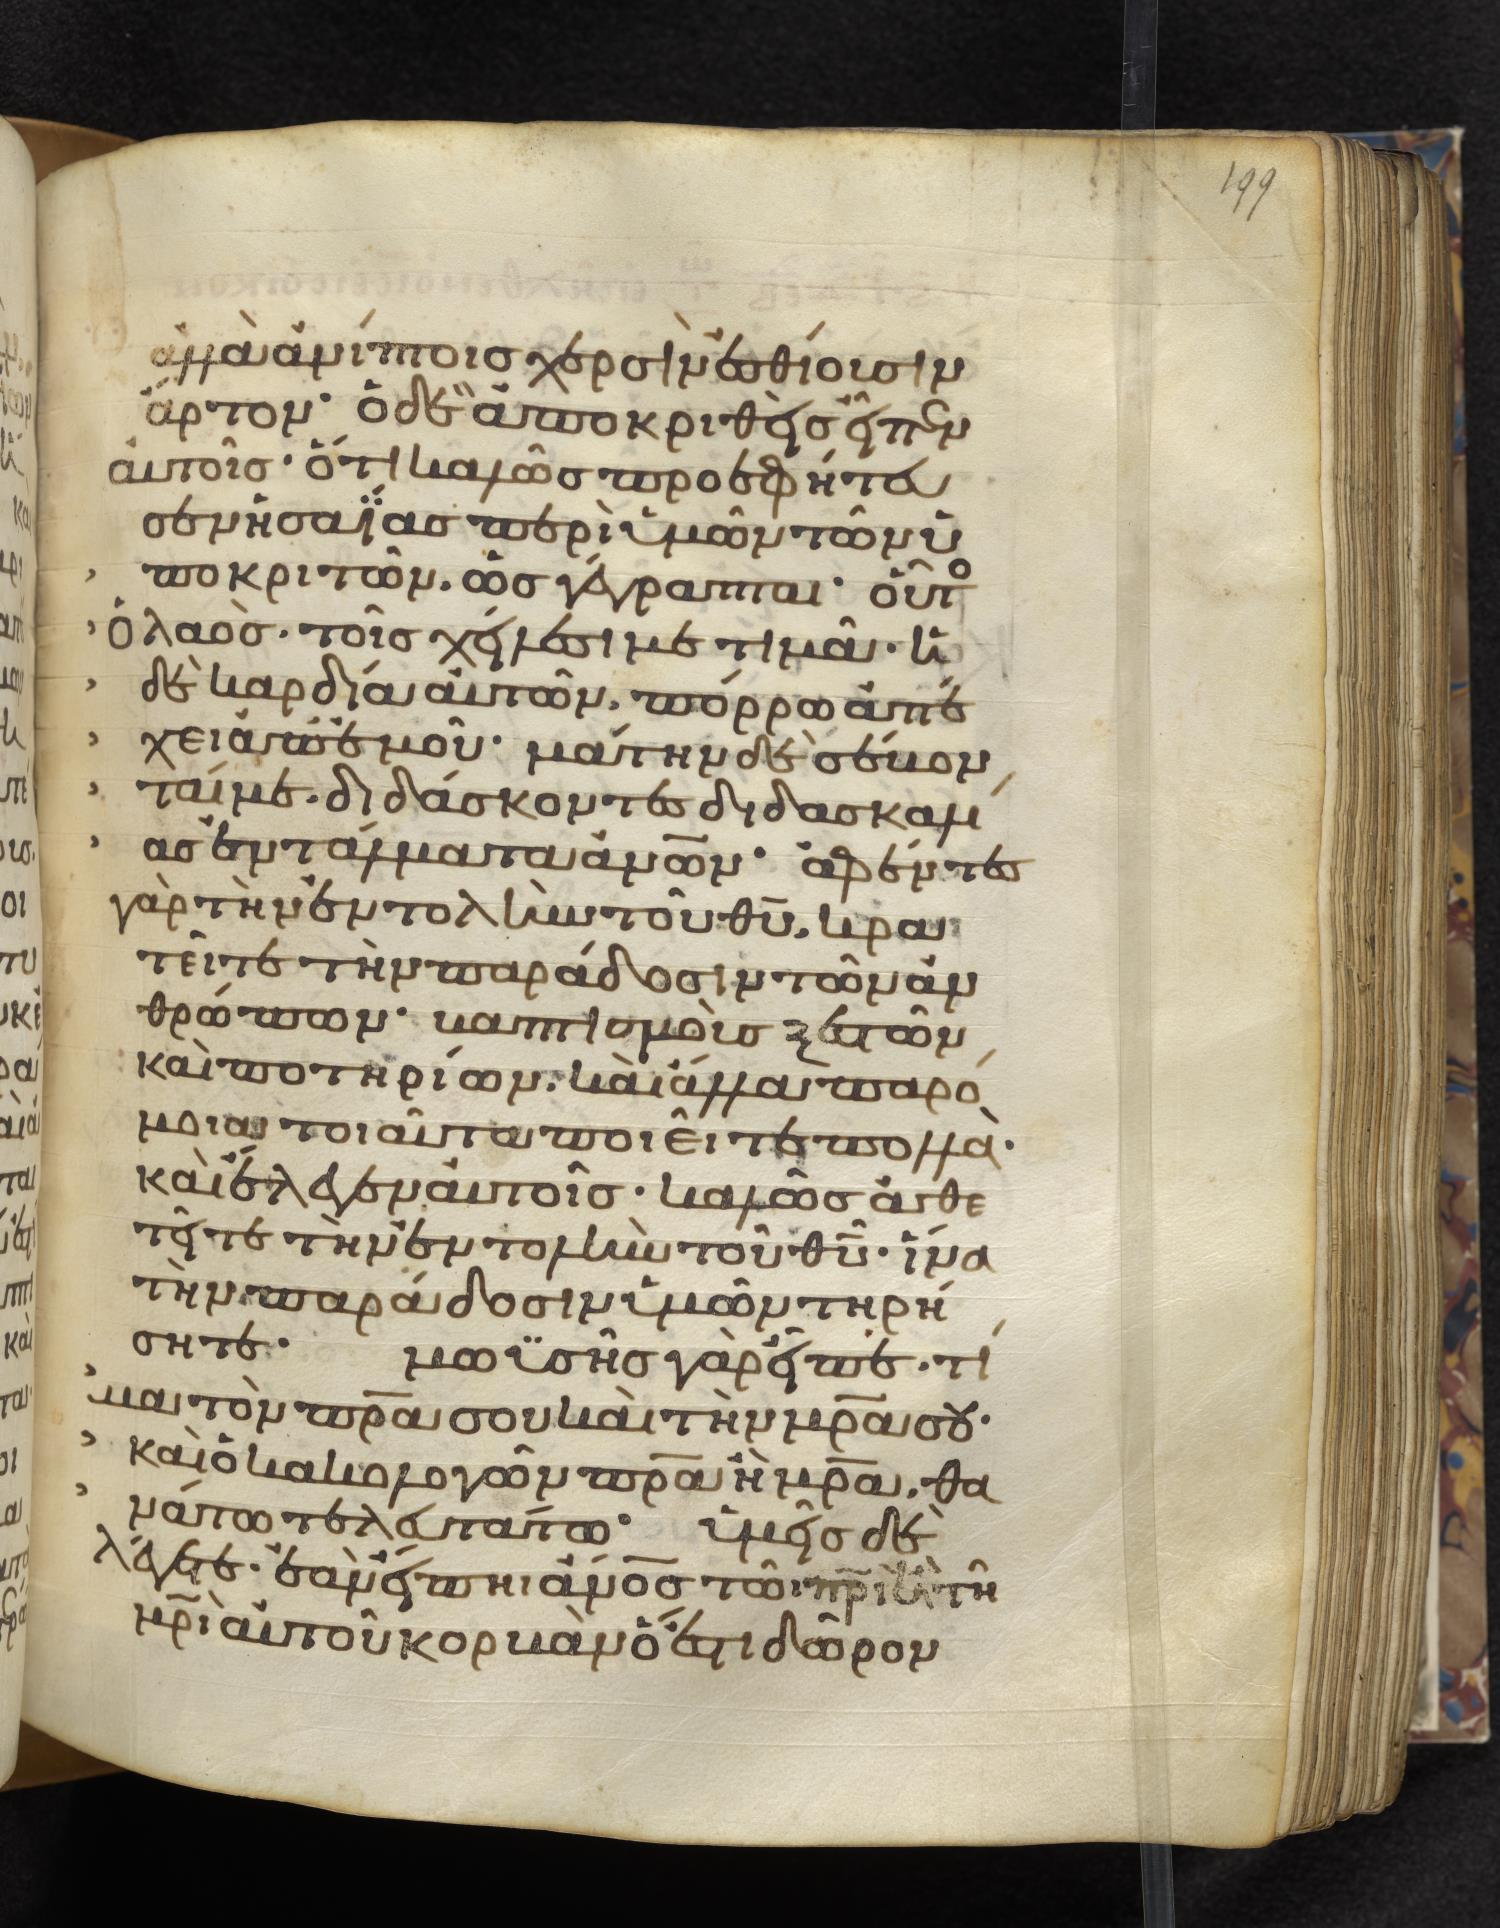 199
ἀλλὰ ἀνίπτοις χερσὶν ἐσθίουσιν
ἄρτον· ὁ δὲ ἀποκριθεὶς εἶπεν
αὐτοῖς· ὅτι καλῶς προεφήτευ
σεν ἡσαΐας περὶ ὑμῶν τῶν ὑ
ποκριτῶν. ὡς γέγραπται· οὗτο
ὁ λαὸς· τοῖς χείλεσι με τιμᾶ· ἡ
δὲ καρδία αὐτῶν. πόρρω ἀπέ
χει ἀπ' ἐμοῦ· μάτην δὲ σέβον
ταί με· διδάσκοντες διδασκαλί
ας ἐντάλματα ἀνων· ἀφέντες
γὰρ τὴν ἐντολὴν τοῦ θυ. κρα
τεῖτε τὴν παράδοσιν τῶν ἀν
θρώπων· βαπτισμοὺς ξεστῶν
καὶ ποτηρίων. καὶ ἄλλα παρό
μοια τοιαῦτα ποιεῖτε πολλὰ·
καὶ ἔλεγεν αὐτοῖς· καλῶς ἀθε
τεῖτε τὴν ἐντολὴν τοῦ θυ· ἵνα
τὴν παράδοσιν ὑμῶν τηρή
σητε· μωϋσῆς γὰρ εἶπε· τί
μα τὸν πρα σου καὶ τὴν μρα σου·
καὶ ὁ κακολογῶν πρα ἢ μρα. θα
νάτω τελευτάτω· ὑμεῖς δὲ
λέγετε· ἐὰν εἴπηι ἀνος τῶι πρὶ ἢ τῆ
μρὶ αὐτοῦ κορβὰν ὅ ἐστι δῶρον